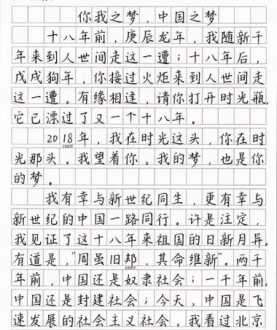 你我之梦,中国之梦
十八年前,庚辰龙年,我随新千
年来到人世间走这一遭;十八年后,
戊戌狗年,你接过火炬来到人世间走
这一遭。有缘相逢,请你打开时光瓶
它已漂过了又一个十八年。
2018年,我在时光这头,你在时
光那头。我望着你。我的梦,也是你
的梦。
我有幸与新世纪同生,更有幸与
新世纪的中国一路同行。许是注定,
我见证了这十八年来祖国的日新月异。
有道是,“周虽旧邦,其命维新”。两千
年前,中国还是奴隶社会;一千年前,
中国还是封建社会;今天,中国是飞
速发展的社会主义社会,我看过北京